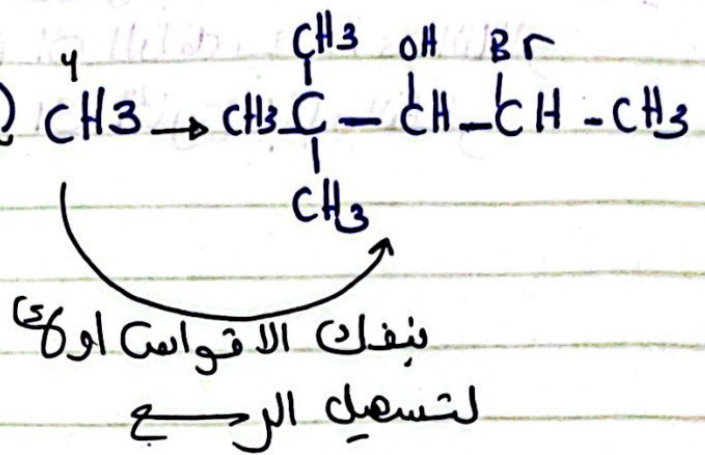 CH3 OH Br
) CH3 → CH3 C – CH – CH - CH3
4
CH3
بنفك الاقواس اولاً
لتسهيل الرسم